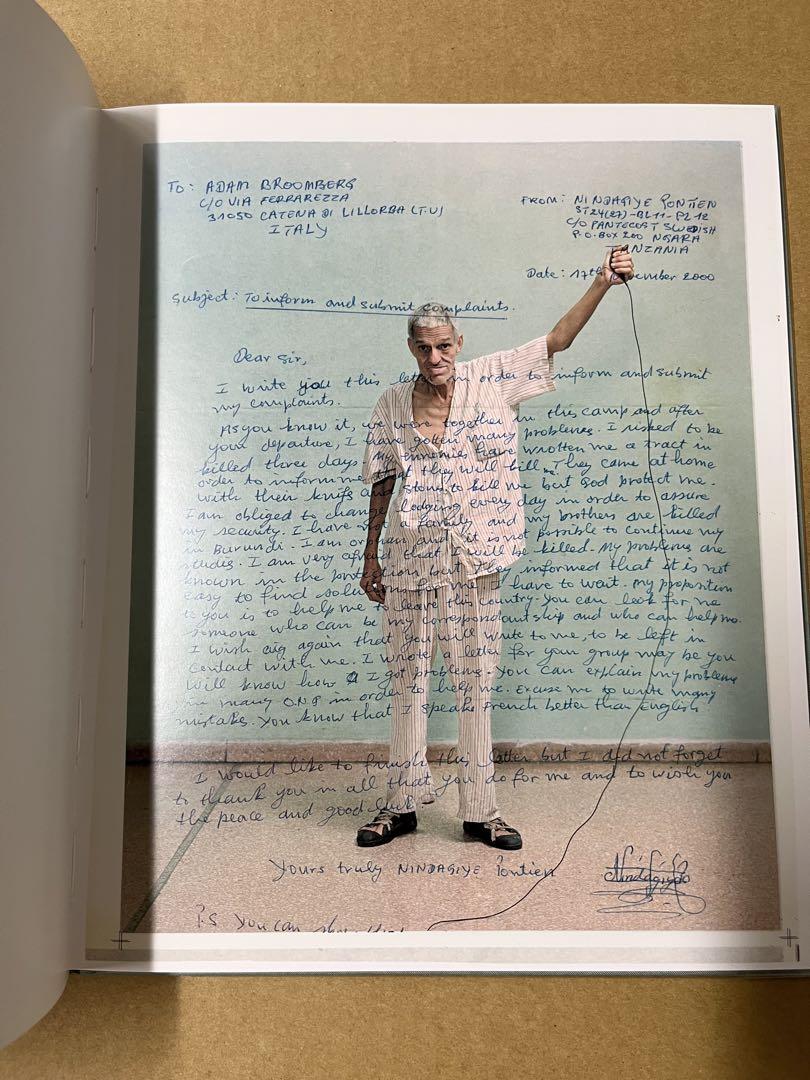 TO: ADAM BROOMBERG
C/O VIA FERRAREZZA
31050 CATENA DI LILLORBA (T.V)
ITALY
FROM: NINDAGIYE PONTIEN
ST24(27)-BL11-PL12
C/O PANTECOST SWEDISH
P.O.BOX 200 NGARA
TANZANIA
Date: 17th 2000
Subject: To inform and submit complaints.
Dear Sir,
I write you this letter in order to inform and submit
my complaints.
As you know it, we were together in this camp and after
your departure, I have gotten many problems. I risked to be
killed three days. My ennemies have wrotten me a tract in
order to inform me that they will kill me. They came at home
with their knifs and stons to kill me but God protect me.
I am obliged to change lodging every day in order to assure
my security. I have not family and my brothers are killed
in Burundi. I am orphan and it is not possible to continue my
studis. I am very afraid that I will be killed. My problems are
known in the but they informed that it is not
easy to find solution for me I have to wait. My proposition
to you is to help me to leave this country. You can look for me
someone who can be my correspondantship and who can help me.
I wish again that you will write to me, to be left in
contact with me. I wrote letter for your group may be you
will know how I got problems. You can explain my problems
in many O.N.G in order to help me. Excuse me to write many
mistakes. You know that I speake French better than English
I would like to finish this letter but I did not forget
to thank you in all that you do for me and to wish you
the peace and good luck
Yours truly NINDAGIYE Pontien
P.S You can